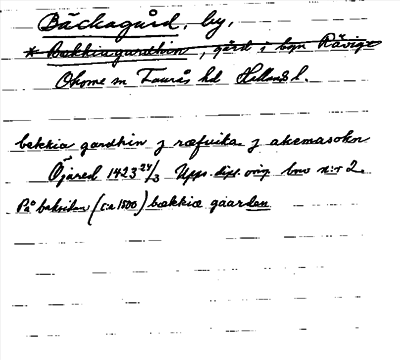 Bäckagård, by,
* Bækkiagardhin, gård i byn Rävige
Okome sn Faurås hd Hallands l.
bekkia gardhin j ræfvika j akemasokn
Öjared 1423 24/3 Upps. dipl. övig bnv n:r 2
På baksidan (c:a 1500) bækkiæ gaarden